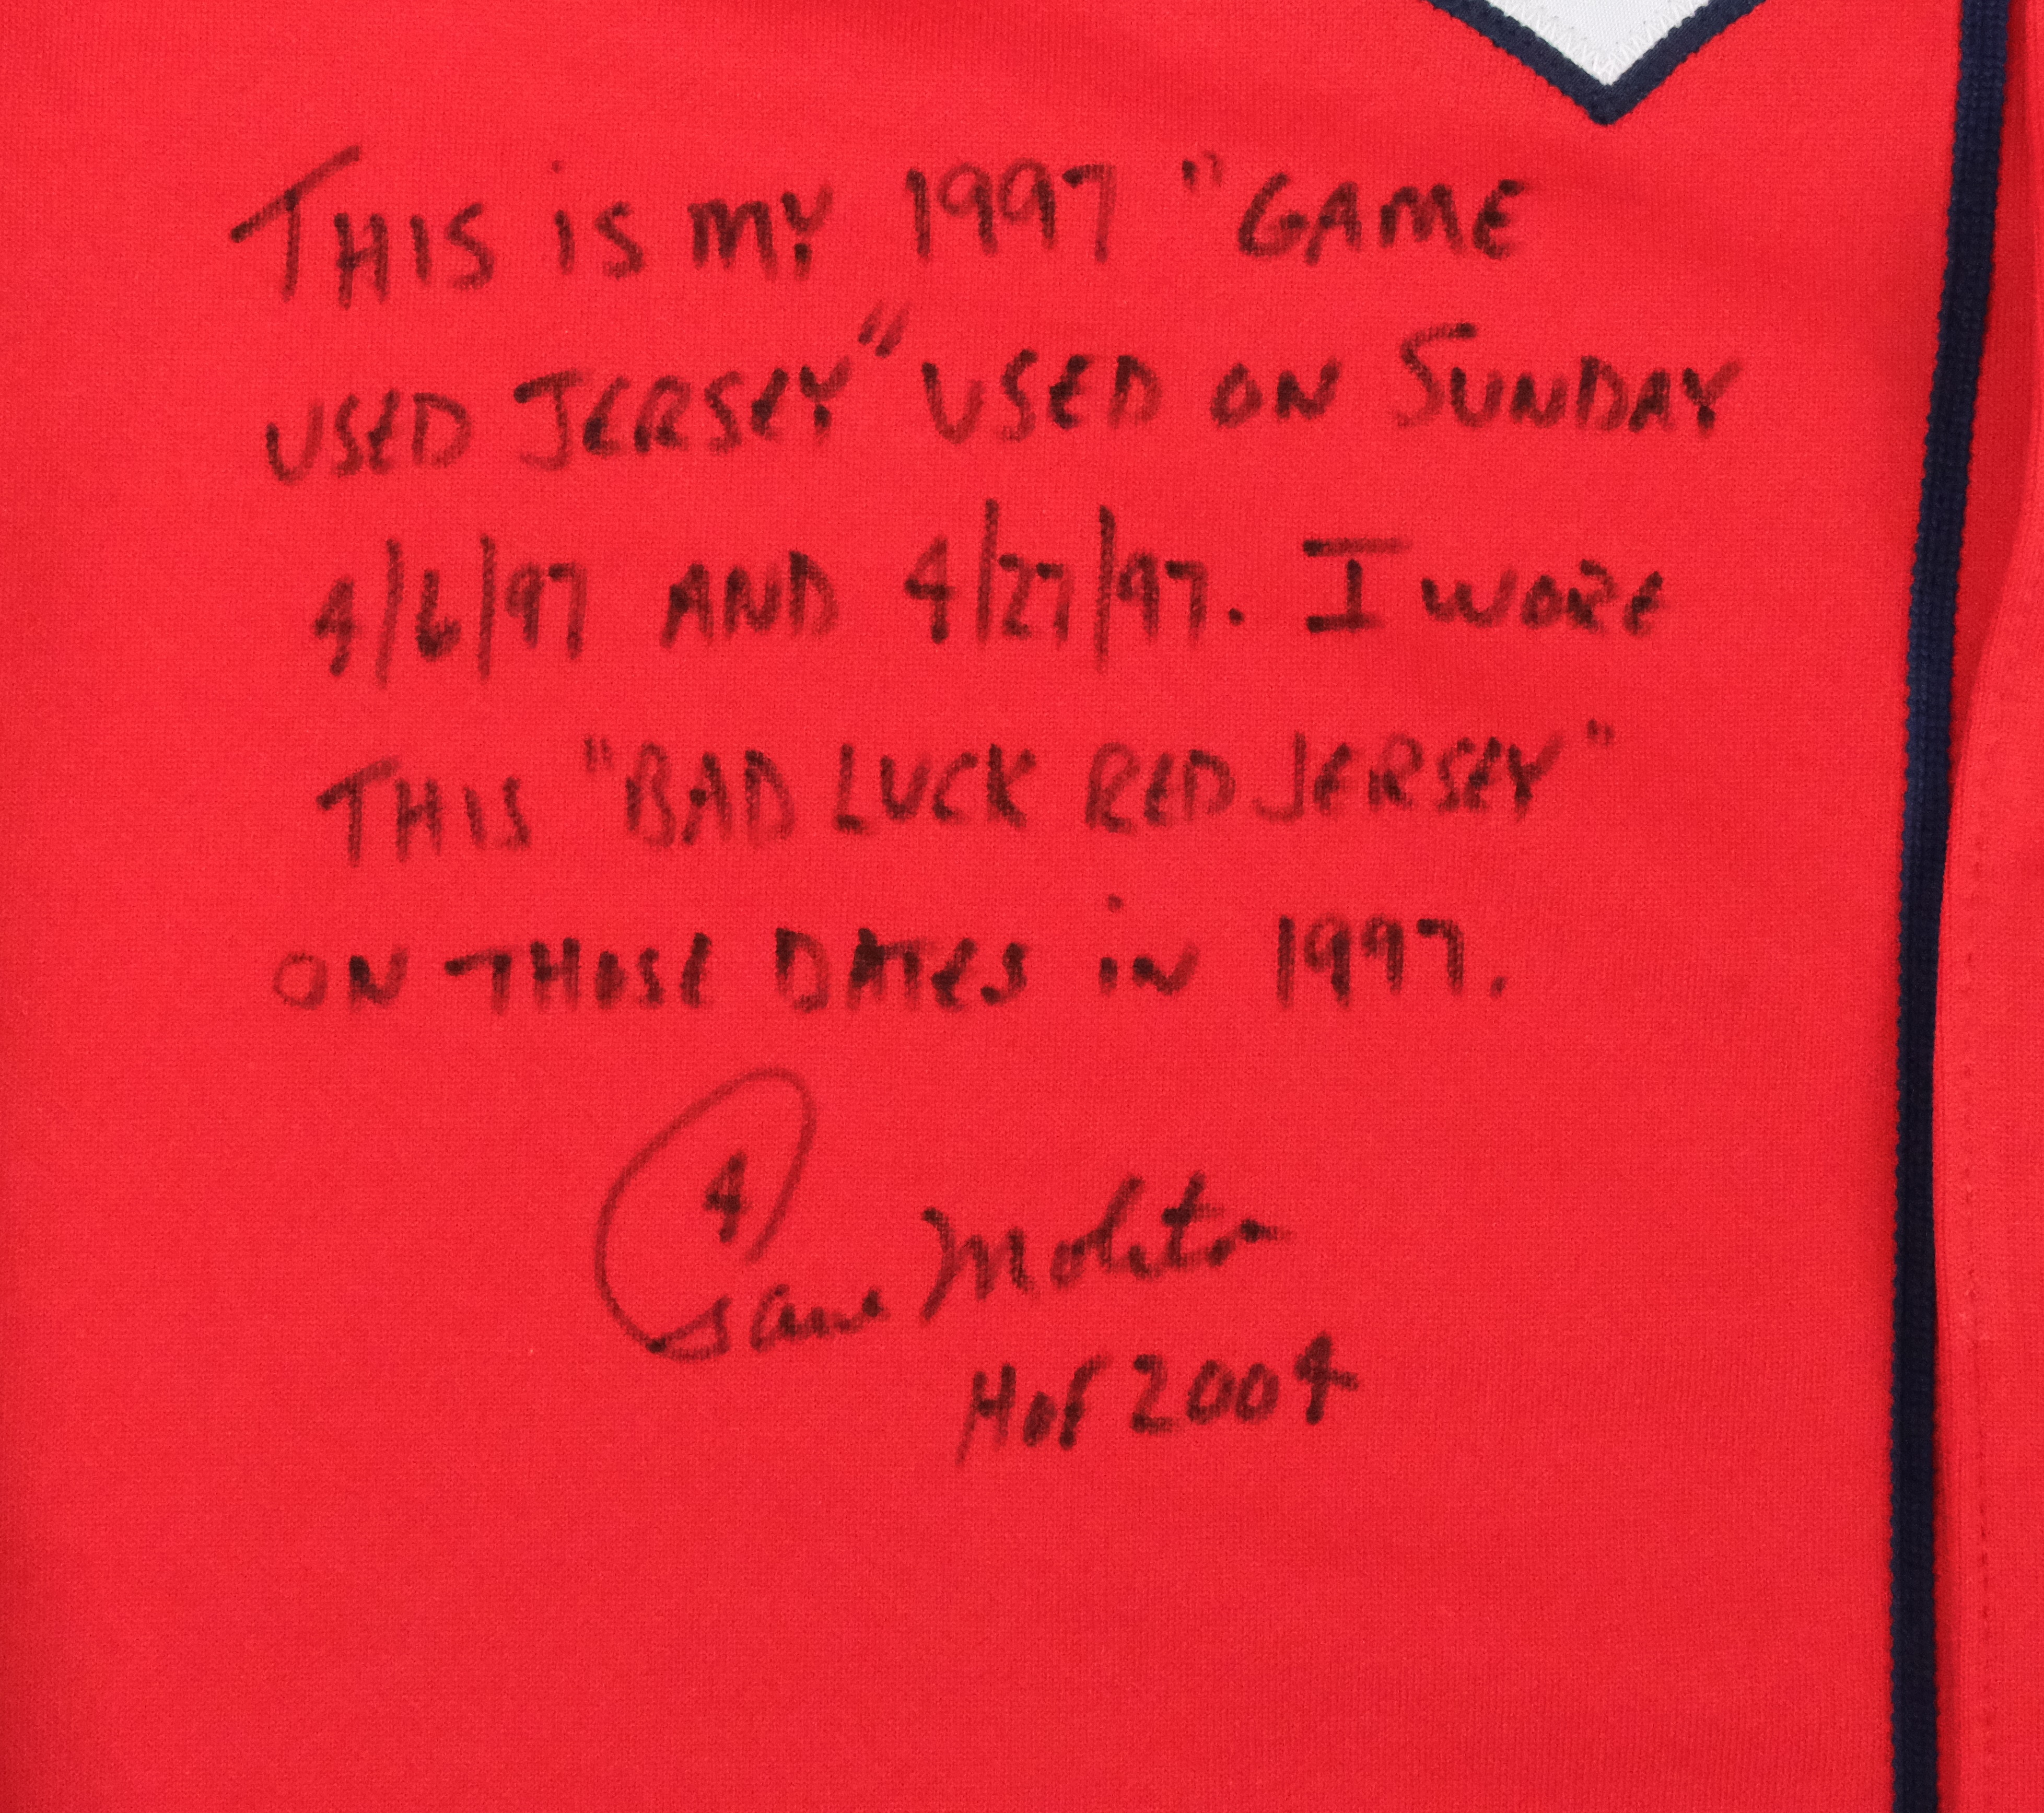 THIS iS MY 1997 "GAME
USED JERSEY" USED ON SUNDAY
4/6/97 AND 4/27/97. I WORE
THIS "BAD LUCK RED JERSEY"
ON THOSE DATES iN 1997.
4
Paul Molitor
HOF 2004